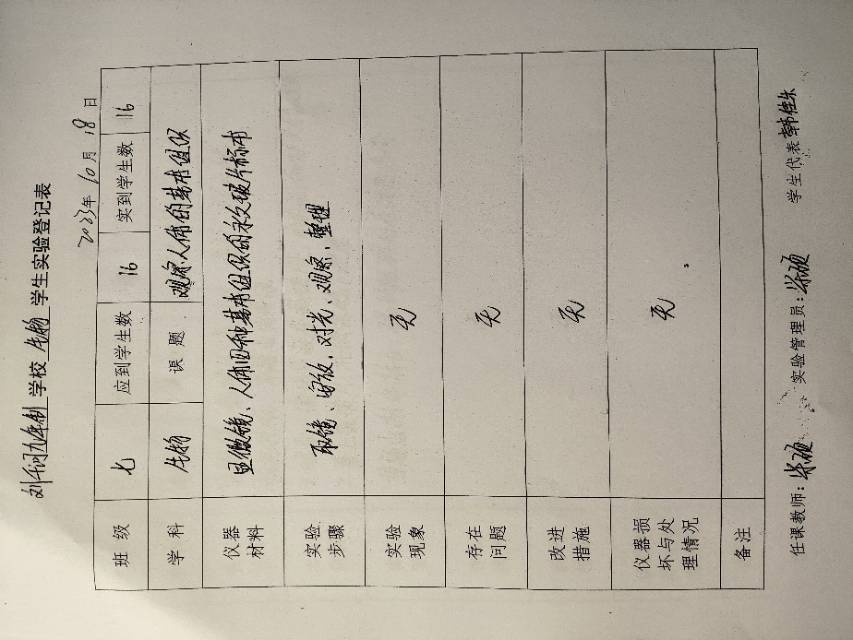 刘千河九年制学校生物学生实验登记表
2023年10月18日
班级 七 应到学生数 16 实到学生数 16
学科 生物 课题 观察人体的基本组织
仪器材料 显微镜、人体四种基本组织的永久玻片标本
实验步骤 取镜、安放、对光、观察、整理
实验现象 无
存在问题 无
改进措施 无
仪器损坏与处理情况 无
备注
任课教师: 实验管理员: 学生代表